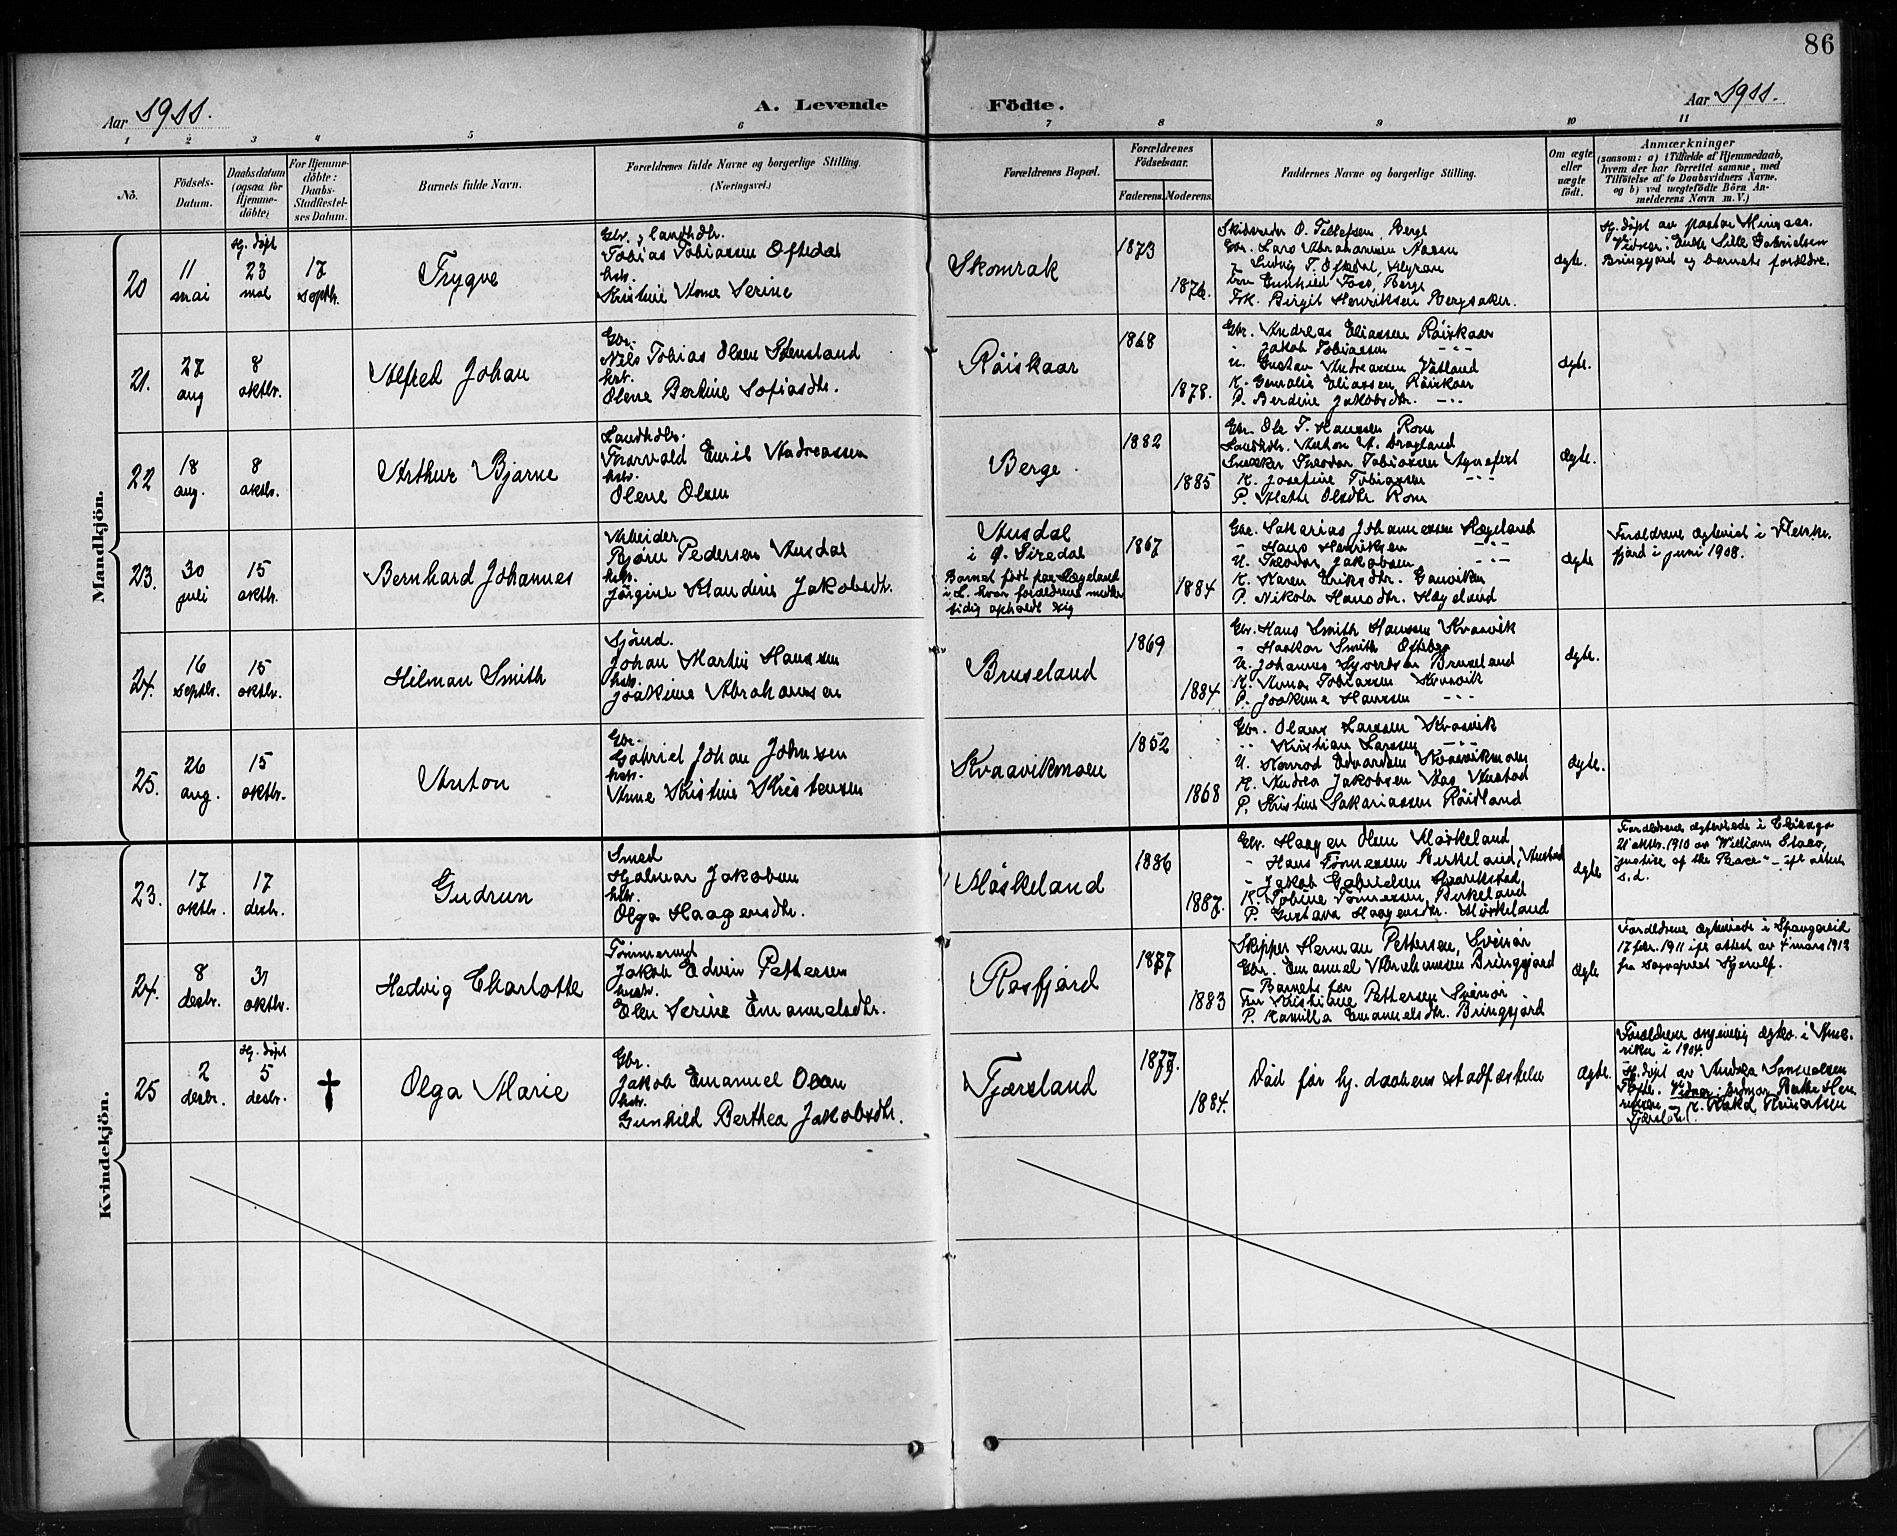 86
Aar 1911.
A. Levende Födte.
Aar 1911.
1 2 3 4 5 6 7 8 9 10 11
No.
Födsels-Datum.
Daabsdatum (ogsaa for Hjemme-döbte)
For Hjemme-döbte: Daabs-Stadfæstel-ses Datum.
Barnets fulde Navn.
Forældrenes fulde Navne og borgerlige Stilling.
(Næringsvei.)
Forældrenes Bopæl.
Forældrenes Födselsaar.
Faderens. Moderens.
Faddernes Navne og borgerlige Stilling.
Om ægte eller uægte födt.
Anmærkninger
(saasom: a) i Tilfælde af Hjemmedaab,
hvem der har forrettet samme, med
Tilföielse af to Daabsvidners Navne.
og b) ved uægtefödte Börn An-
melderens Navn m. V.)
Mandkjön.
20
11 mai
Hj. døpt 23 mai
17 septbr.
Trygve
Gbr., landhdlr.
Tobias Tobiassen Oftedal
hstr.
Kristine Anne Serine
Skomrak
1873
1876.
Skibsreder O. Tellefsen, Berge
Gbr. Lars Abrahamsen Aasen
" Ludvig T. Oftedal,
Fru Gunhild Foss, Berge
Frk. Birgit Henriksen Bergsaker.
ægte.
Hj. døpt av pastor
Vidner: Enke Lille Gabrielsen
Bringsjord og barnets forældre.
21.
27 aug
8 oktbr.
Alfred Johan
Gbr.
Nils Tobias Olsen Stensland
hstr.
Olene Bertine Sofiasdtr.
Röiskaar
1868
1878.
Gbr. Andreas Eliassen Röiskaar
" Jakob Tobiassen -"-
U. Gustav Andreassen Vatland
K. Gemalie Eliassen Röiskaar
P. Berdine Jakobsdtr. -"-
ægte.
22
18 aug.
8 oktbr.
Arthur Bjarne
Landhdlr.
Torvald Emil Andreassen
hstr.
Olene Olsen
Berge
1882
1885
Gbr. Ole T. Hanssen Rom
Landhdlr. Anton A. Dragland
Snekker Theodor Tobiassen Agnefest
K. Josefine Tobiassen -"-
P. Mette Olsdtr. Rom
ægte.
23.
30 juli
15 oktbr.
Bernhard Johannes
Arbeider
Bjørn Pedersen Ausdal
hstr.
Jørgine Maudine Jakobsdtr.
Ausdal
i Ø. Siredal
Barnet født paa Hægeland
i L. hvor forældrene midler-
tidig opholdt sig
1867
1884
Gbr. Sakarias Johannessen Hægeland
" Hans Henriksen -"-
U. Teodor Jakobsen -"-
K. Karen Eriksdtr. Gauviken
P. Nikola Hansdtr. Hægeland
ægte
Forældrene ægteviet i Flekke-
fjord i juni 1908.
24.
16 septbr.
15 oktbr.
Hilman Smith
Sjömd.
Johan Martin Hanssen
hstr.
Joakine Abrahamsen
Bruseland
1869
1884
Gbr. Hans Smith Hanssen Kvaavik
" Haakon Smith
U. Johannes Syvertsen Bruseland
K. Anna Tobiassen Kvaavik
P. Joakine Hanssen -"-
ægte.
25.
26 aug.
15 oktbr.
Anton
Gbr.
Gabriel Johan Johnsen
hstr.
Anne Kristine Kristensen
Kvaavikmoen
1852
1868
Gbr. Olaus Larssen Kvaavik
" Kristian Larssen -"-
U. Konrad Edvardsen Kvaavikmoen
K. Andrea Jakobsen Aag Austad
P. Kristine Sakariassen Röidland
ægte.
Kvindekjön.
23.
17 oktbr.
17 desbr.
Gudrun
Smed
Hjalmar Jakobsen
hstr.
Olga Haagensdtr.
Møskeland
1886
1887.
Gbr. Haagen Olsen Møskeland
" Hans Tønnessen Birkeland, Austad
" Jakob Gabrielsen
K. Tobine Tønnessen Birkeland
P. Gustava Haagensdtr. Møskeland
ægte
Forældrene ægteviede i Chicago
21 oktbr. 1910 av William
"justice of the Peace" - ifl. attest
s.d.
24.
8 desbr.
31 oktbr.
Hedvig Charlotte
Tømmermd
Jakob Edvin Pettersen
hustr.
Elen Serine Emanuelsdtr.
Rosfjord
1877
1883
Skipper Herman Pettersen, Svinør
Gbr. Emanuel Abrahamsen Bringsjord
Barnets far
Fru Kristiane Pettersen Svinør
P. Kamilla Emanuelsdtr. Bringsjord
ægte
Forældrene ægteviede i Spangereid
17 febr. 1911 ifl. attest av 4 mars 1912
fra sogneprest
25
2 desbr.
Hj. døpt 5 desbr.
†
Olga Marie
Gbr.
Jakob Emanuel Olsen
hstr.
Gunhild Berthea Jakobsdtr.
Tjørsland
1877
1884.
Død før hj. daabens stadfæstelse
ægte.
Forældrene angivelig ægtev. i Ame-
rika i 1904.
Hj. døpt av Andrea Samuelsen
Vidner: jordmor Berthe Hen-
riksen